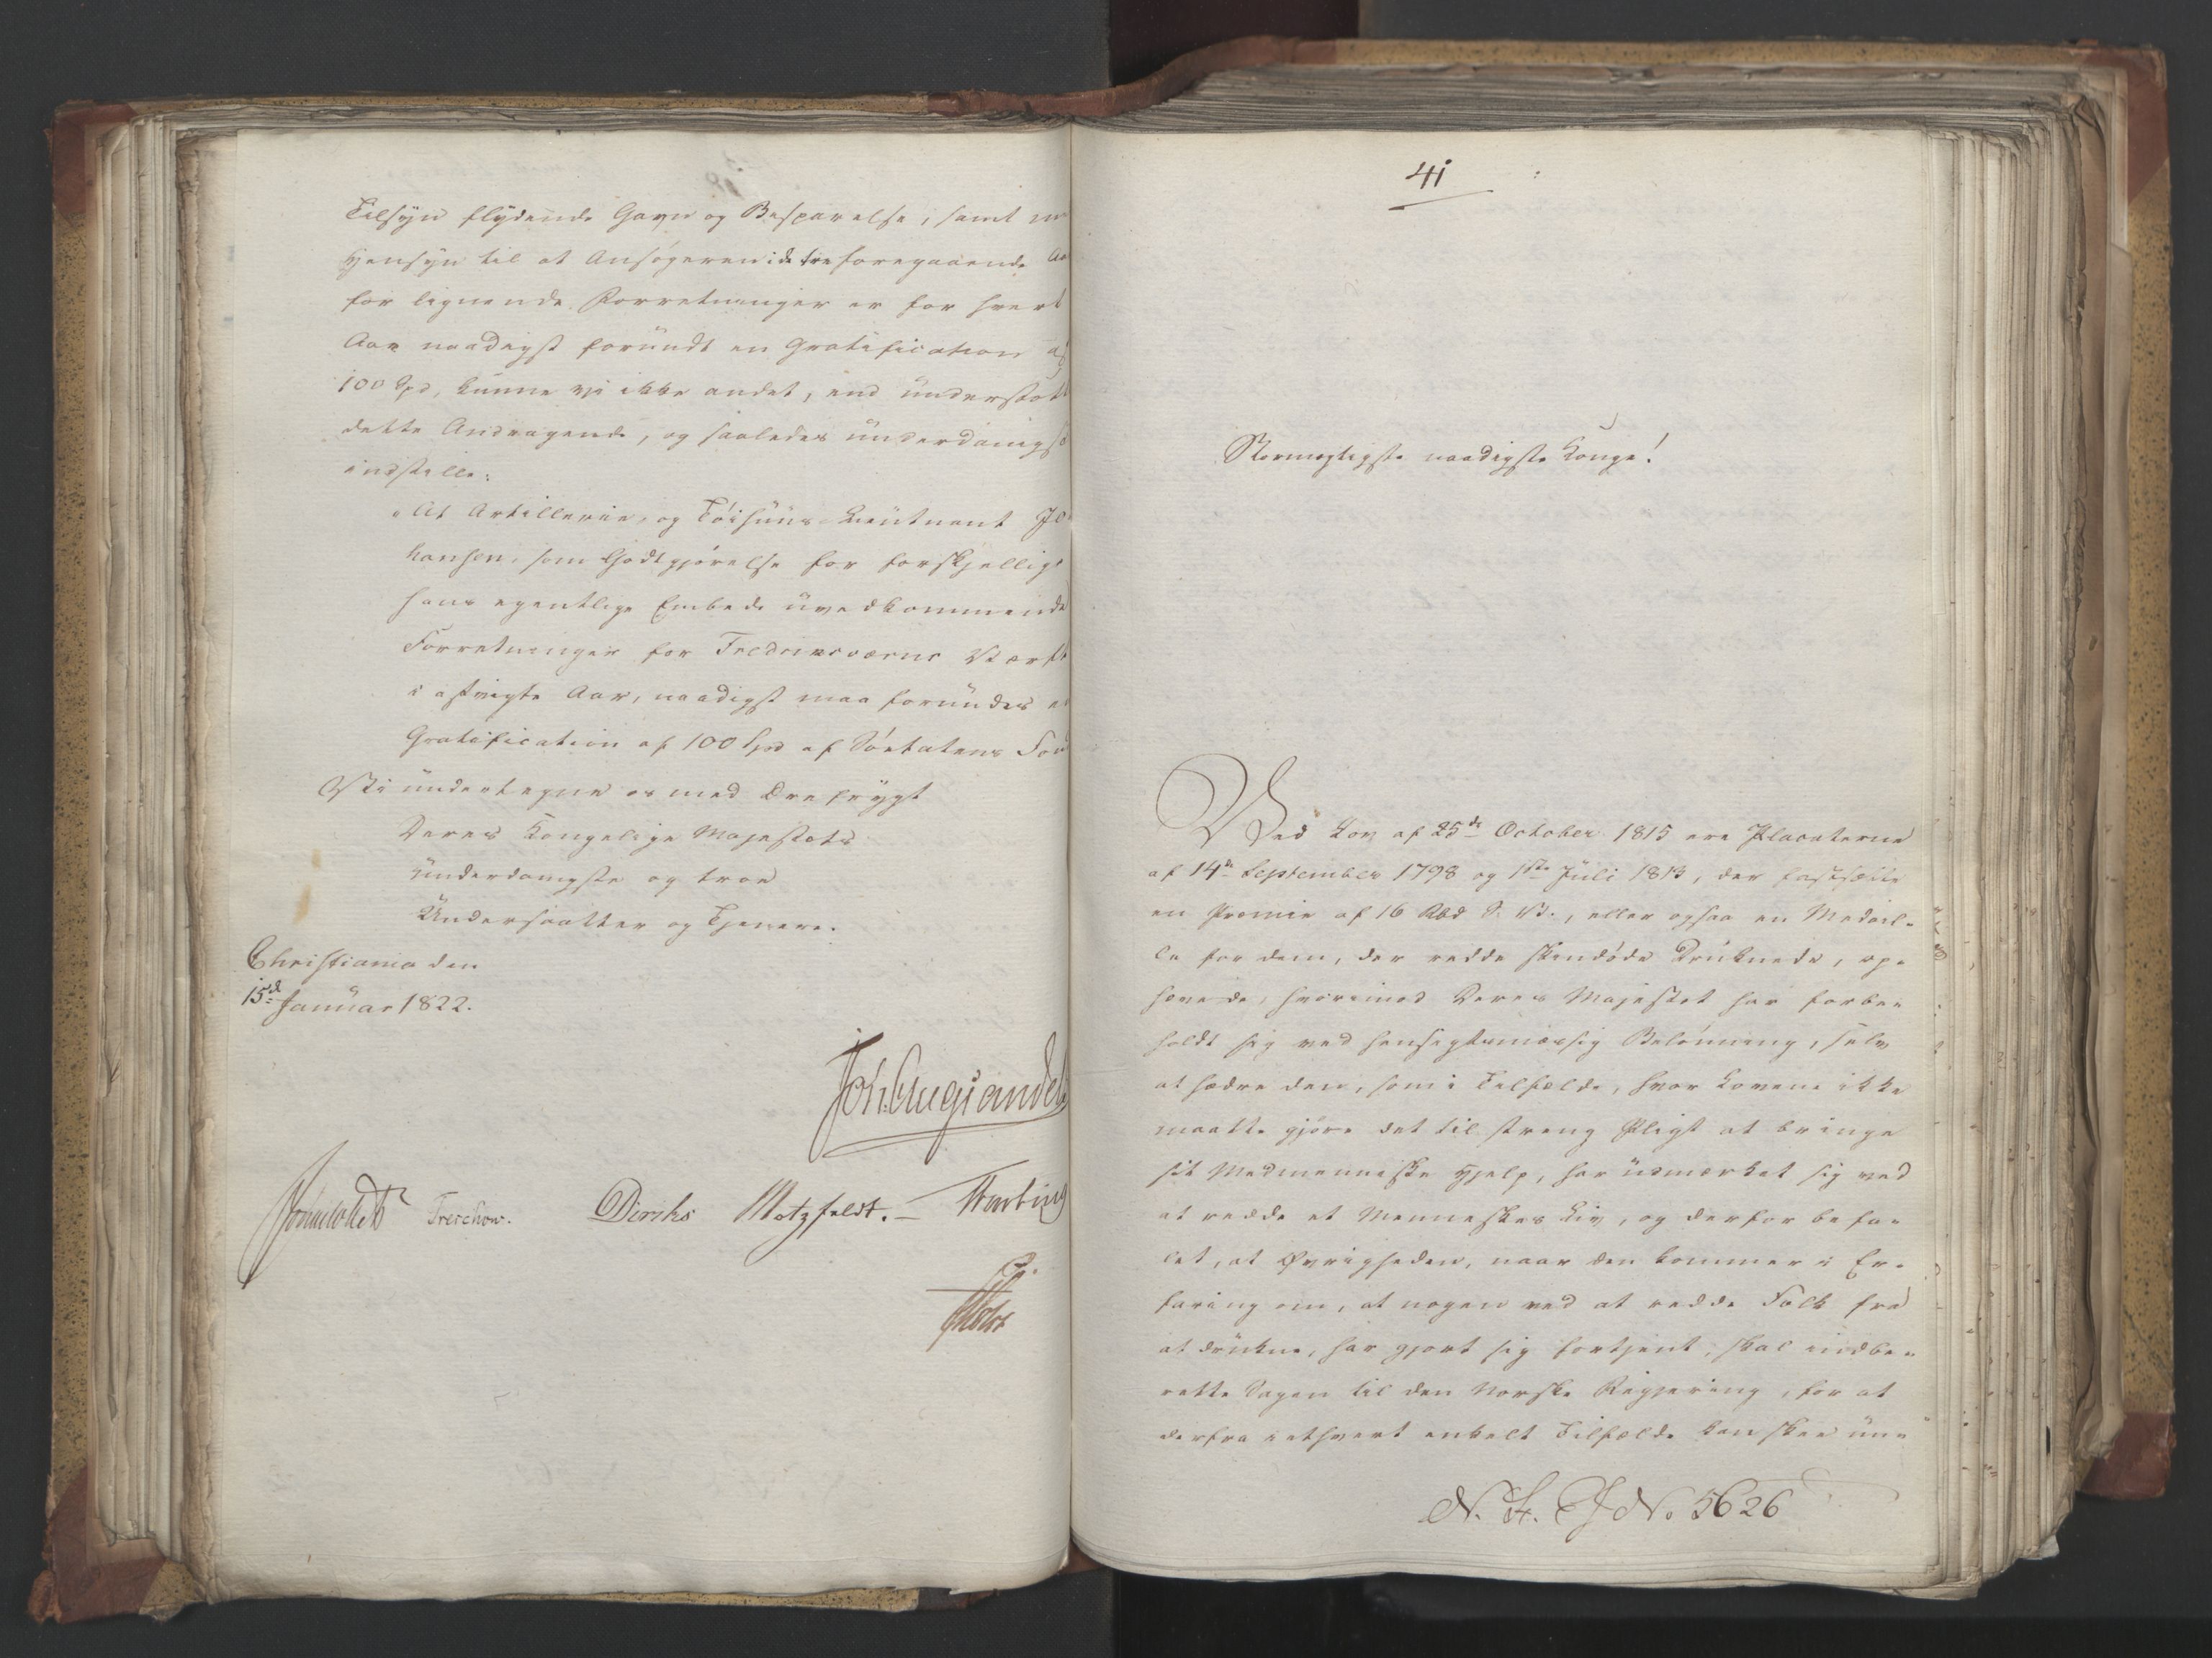 Tilsÿn flÿdende Gavn og Besparelse, samt
Hensÿn til at Ansøgeren i de tre foregaaende Aa
for lignende Forretninger er for hvert
Aar naadigst forundt en Gratification af
100 Spd, kunne vi ikke andet, end understøtte
dette Andragende, og saaledes underdanigst
indstille:
"At Artillerie- og Tøihuus-Lieutnant Jo
hansen, som Godtgjørelse for forskjellige
hans egentlige Embede uvedkommende
Forretninger for Fredriksværns Værft
i afvigte Aar, naadigst maa forundes en
Gratification af 100 Spd af Søetatens Fon
Vi undertegne os med Ærefrÿgt
Deres Kongelige Majestæts
underdanigste og troe
Undersaatter og Tjenere.
Christiania den
15d Januar 1822.
Joh. Aug. Sandels
Sommerfeldt Treschow. Diriks Motzfeldt. Fasting
Holst
41
Stormægtigste naadigste Konge!
Ved Lov af 25de October 1815 ere Placaterne
af 14de September 1798 og 1ste Juli 1813, der fastsætte
en Præmie af 16 Rbd S. V., eller ogsaa en Medail-
le for dem, der redde skindøde Druknede, op-
hævede, hvorimod Deres Majestæt har forbe-
holdt sig ved hensigtsmæssig Belønning, selv
at hædre den, som i Tilfælde, hvor Lovene ikke
maatte gjøre det til streng Pligt at bringe
sit Medmenneske Hjelp, har udmærket sig ved
at redde et Menneskes Liv, og derfor befa-
let, at Øvrigheden, naar den kommer i Er-
faring om, at nogen ved at redde Folk fra
at drukne, har gjort sig fortjent, skal indbe-
rette Sagen til den Norske Regjering, for at
derfra i ethvert enkelt Tilfælde kan skee un-
N. A. J No. 5626